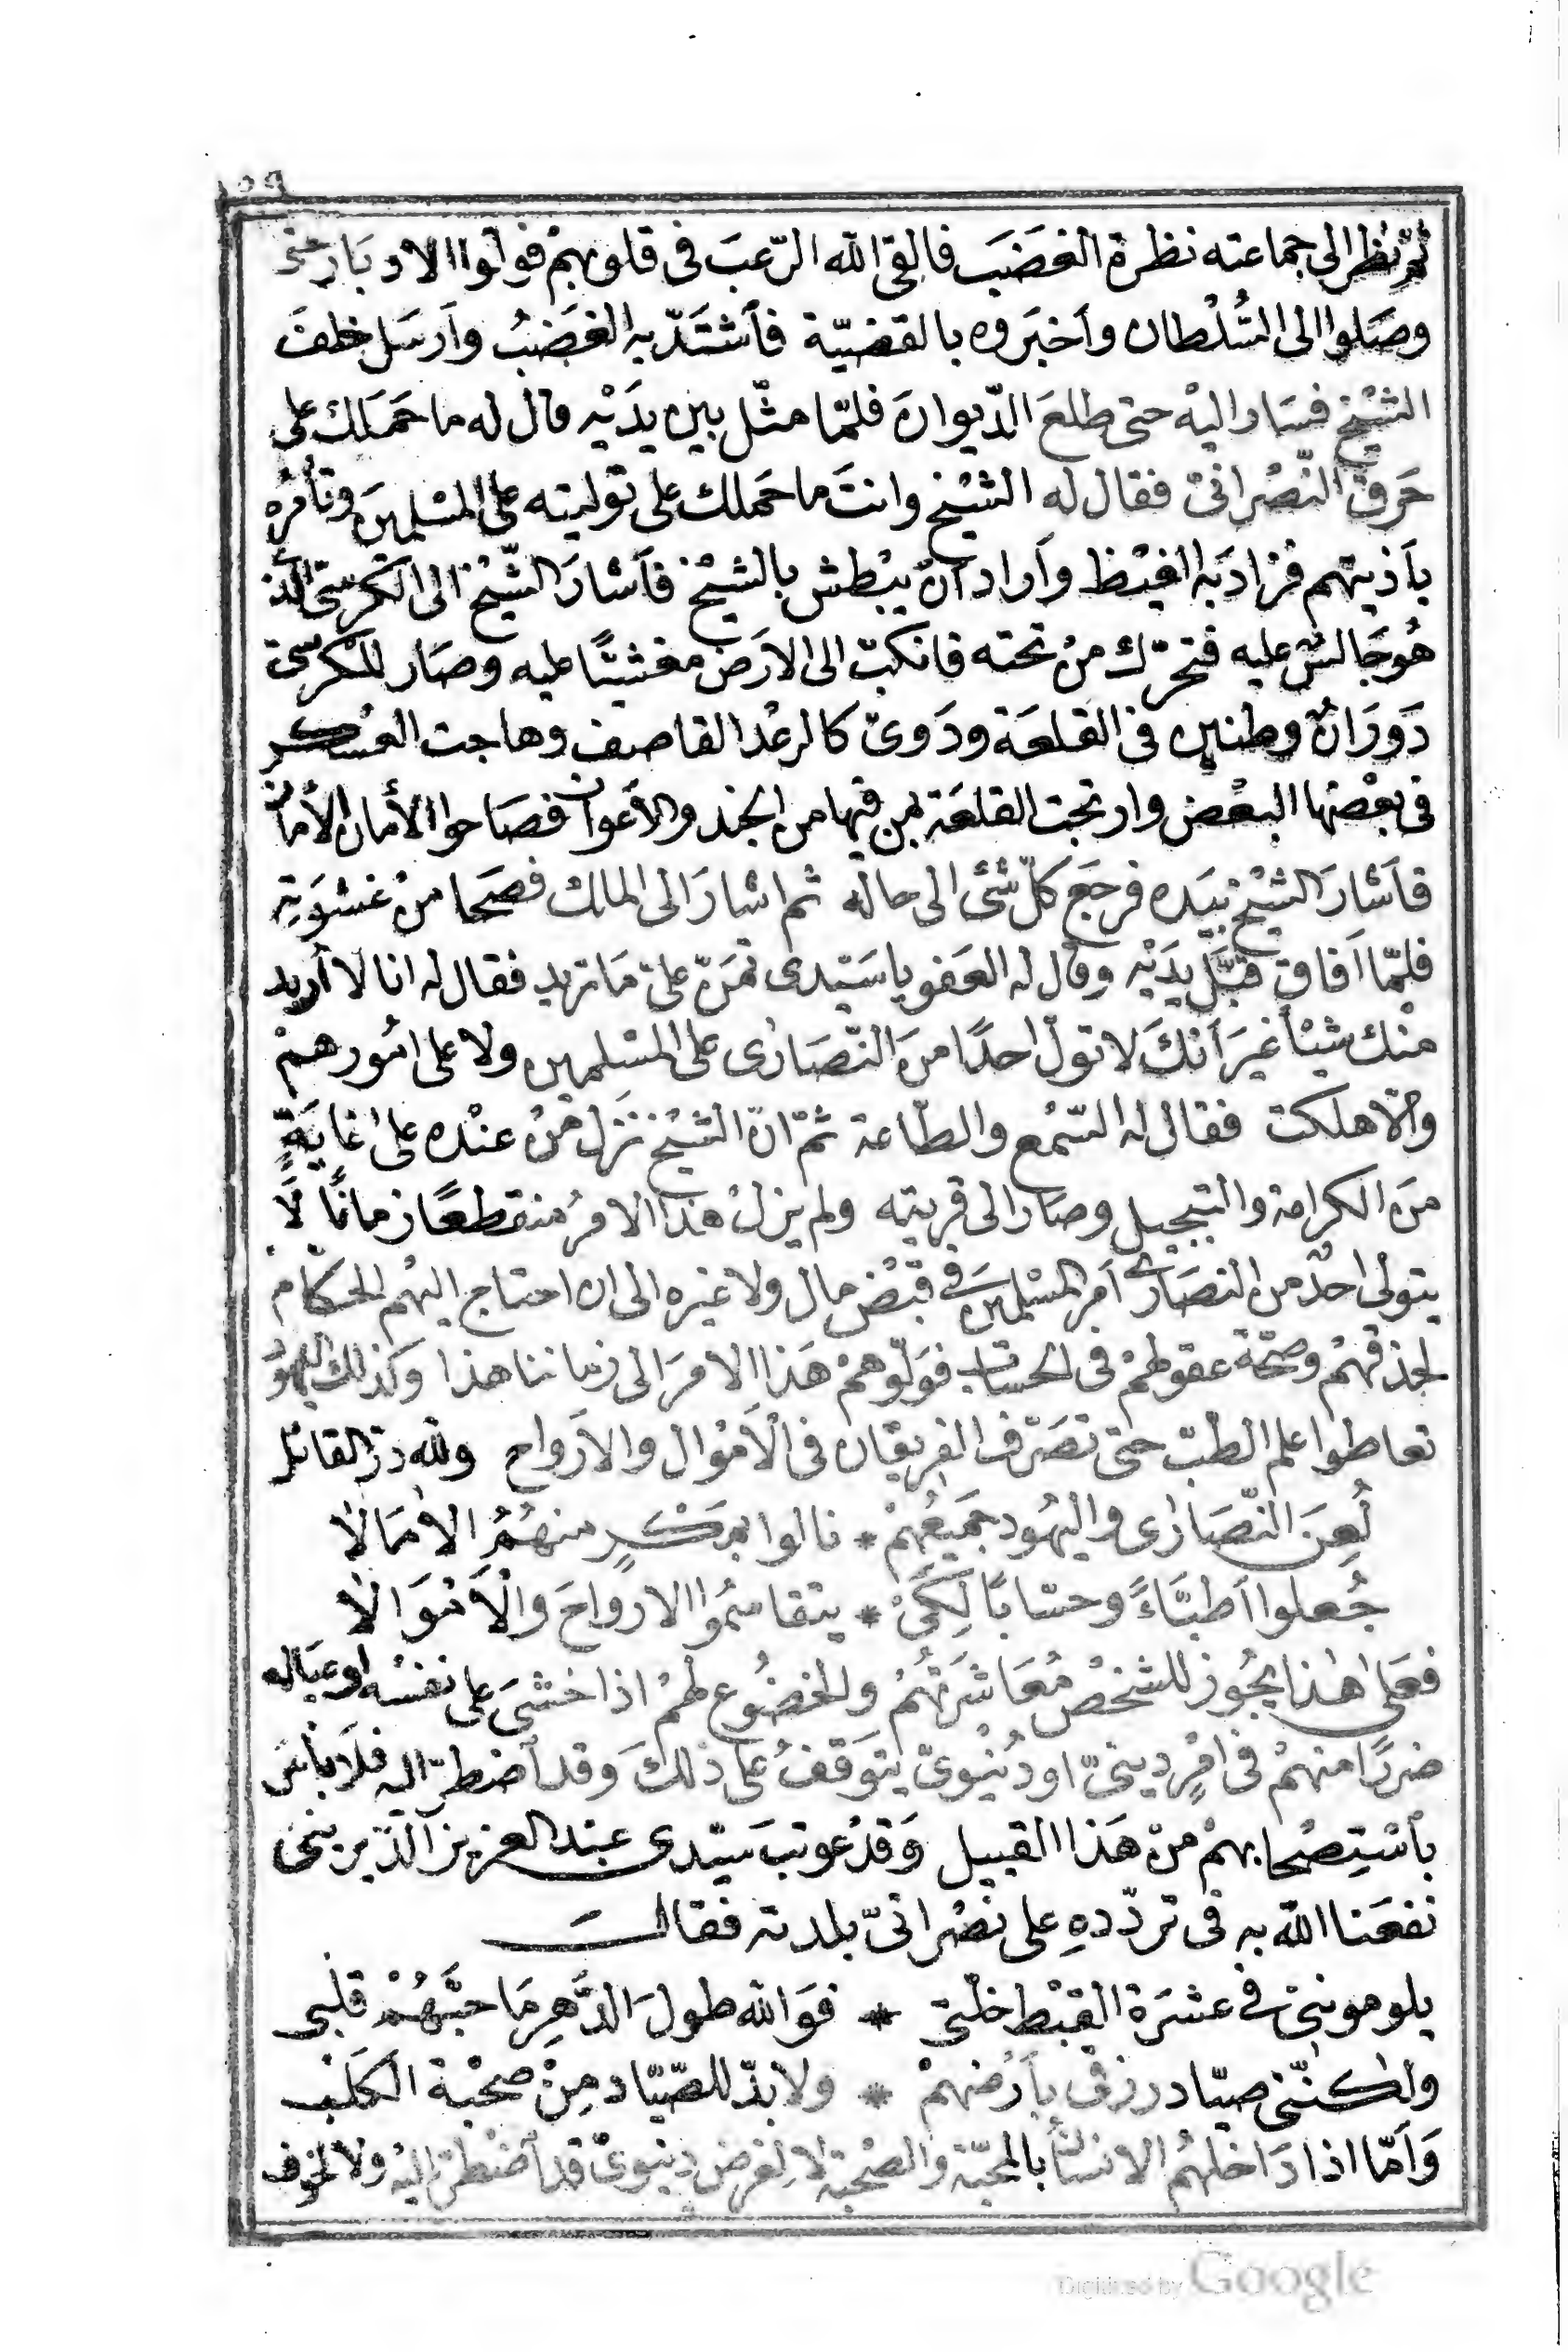 ١٥٩
ثم نظر الى جماعته نظرة الغَضَبَ فالقى الله الرّعبَ فى قلوبهمْ فولّوا الادبَار حتى
وصَلوا الى السُّلْطان وأخبَروه بالقضيّة فأشتَدّ به الغَضَبُ وأرسَل خلفَ
الشيْخ فسَار اليْه حتى طلعَ الدّيوانَ فلمّا مثّل بين يدَيْه قال له ما حَمَلك على
حَرقْ النّصْرانىْ فقال له الشيْخ وانتَ ما حَملك على توليته على المسْلمينَ وتأمُره
بأذيتهم فزادَ به الغيْظ وأراد أنْ يبْطش بالشيْخ فأشارَ الشّيْخ الى الكرْسىّ الّذى
هُوَ جَالسٌ عليه فتحرّك منْ تحته فانكبّ الى الارَض مغشيًّا عليه وصَار للكرْسىّ
دَوَرَانٌ وطنين فى القلعَة ودَوىّ كالرعْد القاصف وهاجت العسَاكر
فى بعْضها البعْض وارتجت القلعَة بمن فيها من الجند والأعوان فصَاحوا الأمان الأمان
فأشارَ الشيْخ بيَده فرجَع كلّ شئ الى حاله ثم اشارَ الى الملك فصَحا منْ غشوَته
فلمّا أفاق قبّل يدَيْه وقال له العَفو يا سَيّدى تمَنّ علىّ مَا تريد فقال له انا لا أريد
منْك شيْئا غيَر أنكَ لا تولّ احدًا منَ النّصَارٰى على المسْلمين ولا على امُورهمْ
والّا هلكتَ فقال له السّمْع والطّاعة ثمّ انّ الشيْخ نزَل منْ عنْده علىٰ غايَةٍ
منَ الكرامة والتبجيل وصَار الى قريته ولم يزلْ هذا الامرُ منقطعًا زمانًا لَا
يتولى احدٌ من النصَارى أمرَ المسْلمينَ فى قبْض مال ولا غيْره الى ان احتاج اليهْم الحكّام
لحذقهْم وصحّة عقولهمْ فى الحسَاب فوَلّوهمْ هَذا الامرَ الى زمَاننا هذا وكذلك اليهُودُ
تعاطوا علم الطّبّ حتى تصَرّف الفريقان فى الأمْوال والارَواح ولله درّ القائل
لُعِنَ النّصَارٰى واليهُود جَميعُهمْ * نالوا بمَكْرٍ منهُمُ الاٰمَالاٰ
جُعلوا أطبّاءً وحسّابًا لِكَىْ * يتقاسَمُوا الارواحَ والْأَمْوَالاٰ
فعَلى هٰذا يجُوز للشخْص مُعَاشَرَتُهُمْ والخضُوع لهمْ اذا خشىَ على نفسْه او عيَاله
ضررًا منهمْ فى امْرٍ دينىّ او دُنيْوىّ يتوَقّفُ على ذٰلكَ وَقد أضطرّ اليه فلَا بأسَ
بأسْتِصْحابهمْ منْ هَذا القبيل وَقدْ عوتبَ سَيّدى عبْد العزيز الدّيرينىّ
نفعَنا الله به فى تردّدهِ على نصْرانىّ بلدته فقالَ
يلومونىْ فى عشْرَة القِبْط خلّتى * فوَالله طولَ الدّهْرِ مَا حبَّهُمْ قلبى
ولكنّنى صيّاد رزقى بأرْضهمْ * ولا بدّ للصّيّاد مِنْ صحْبة الكلْب
وَأمّا اذا دَاخلهُم الانسَان بالمحبّة والصْحبَة لا لغرض دنيوىّ قد أضْطرّ اليْه ولا لخوف
Digitized by Google